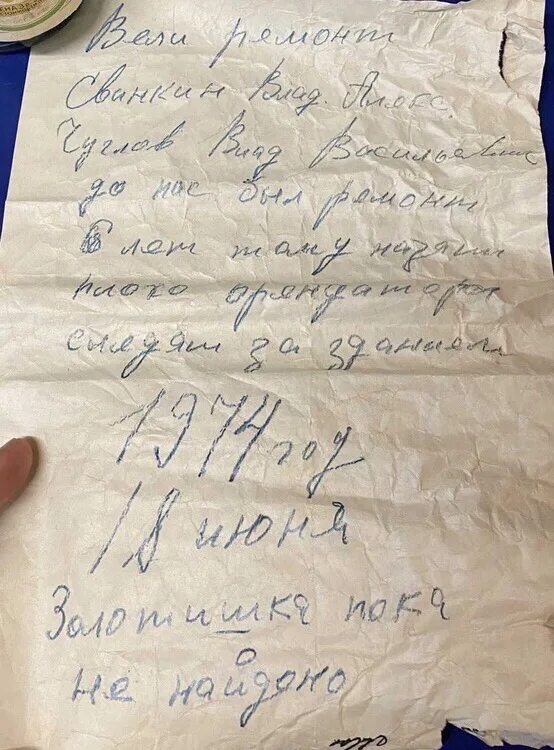 Вели ремонт
Свинкин Влад. Алекс.
Чуглов Влад Васильевич
до нас был ремонт
6 лет тому назят
плохо орендаторы
сыледят за зданием
1974 год
18 июня
Золотишка пока
не найдено